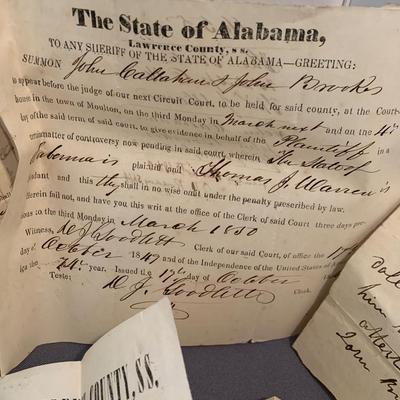 The State of Alabama,
Lawrence County, ss.
TO ANY SHERIFF OF THE STATE OF ALABAMA—GREETING:
SUMMON John Callahan & John Brookes
to appear before the judge of our next Circuit Court, to be held for said county, at the Court-
house in the town of Moulton, on the third Monday in March next and on the 4th
day of the said term of said court, to give evidence in behalf of the Plaintiff in a
certain matter of controversy now pending in said court, wherein The State of
Alabama is plaintiff and Thomas J. Warren is
defendant and this they shall in no wise omit under the penalty prescribed by law.
Herein fail not, and have you this writ at the office of the Clerk of said Court three days pre-
vious to the third Monday in March 1850
Witness, D J Goodlett Clerk of our said Court, of office the 17th
day of October 1849 and of the Independence of the United States of
ica the 74th year. Issued the 17th day of October
Teste: D. J. Goodlett Clerk.
COUNTY, S.S.
him
John